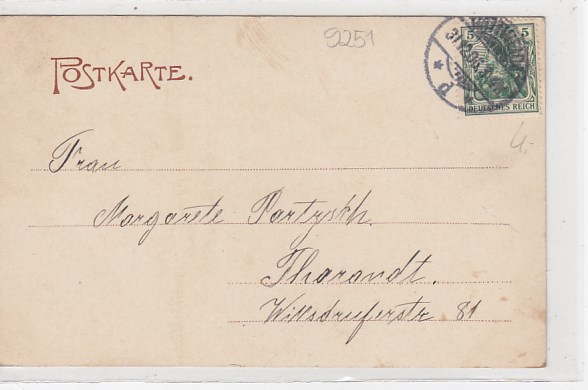 9251
POSTKARTE.
5 5
DEUTSCHES REICH
4.-
Frau
Margarete Partzsch.
Tharandt.
Wilsdruferstr 81